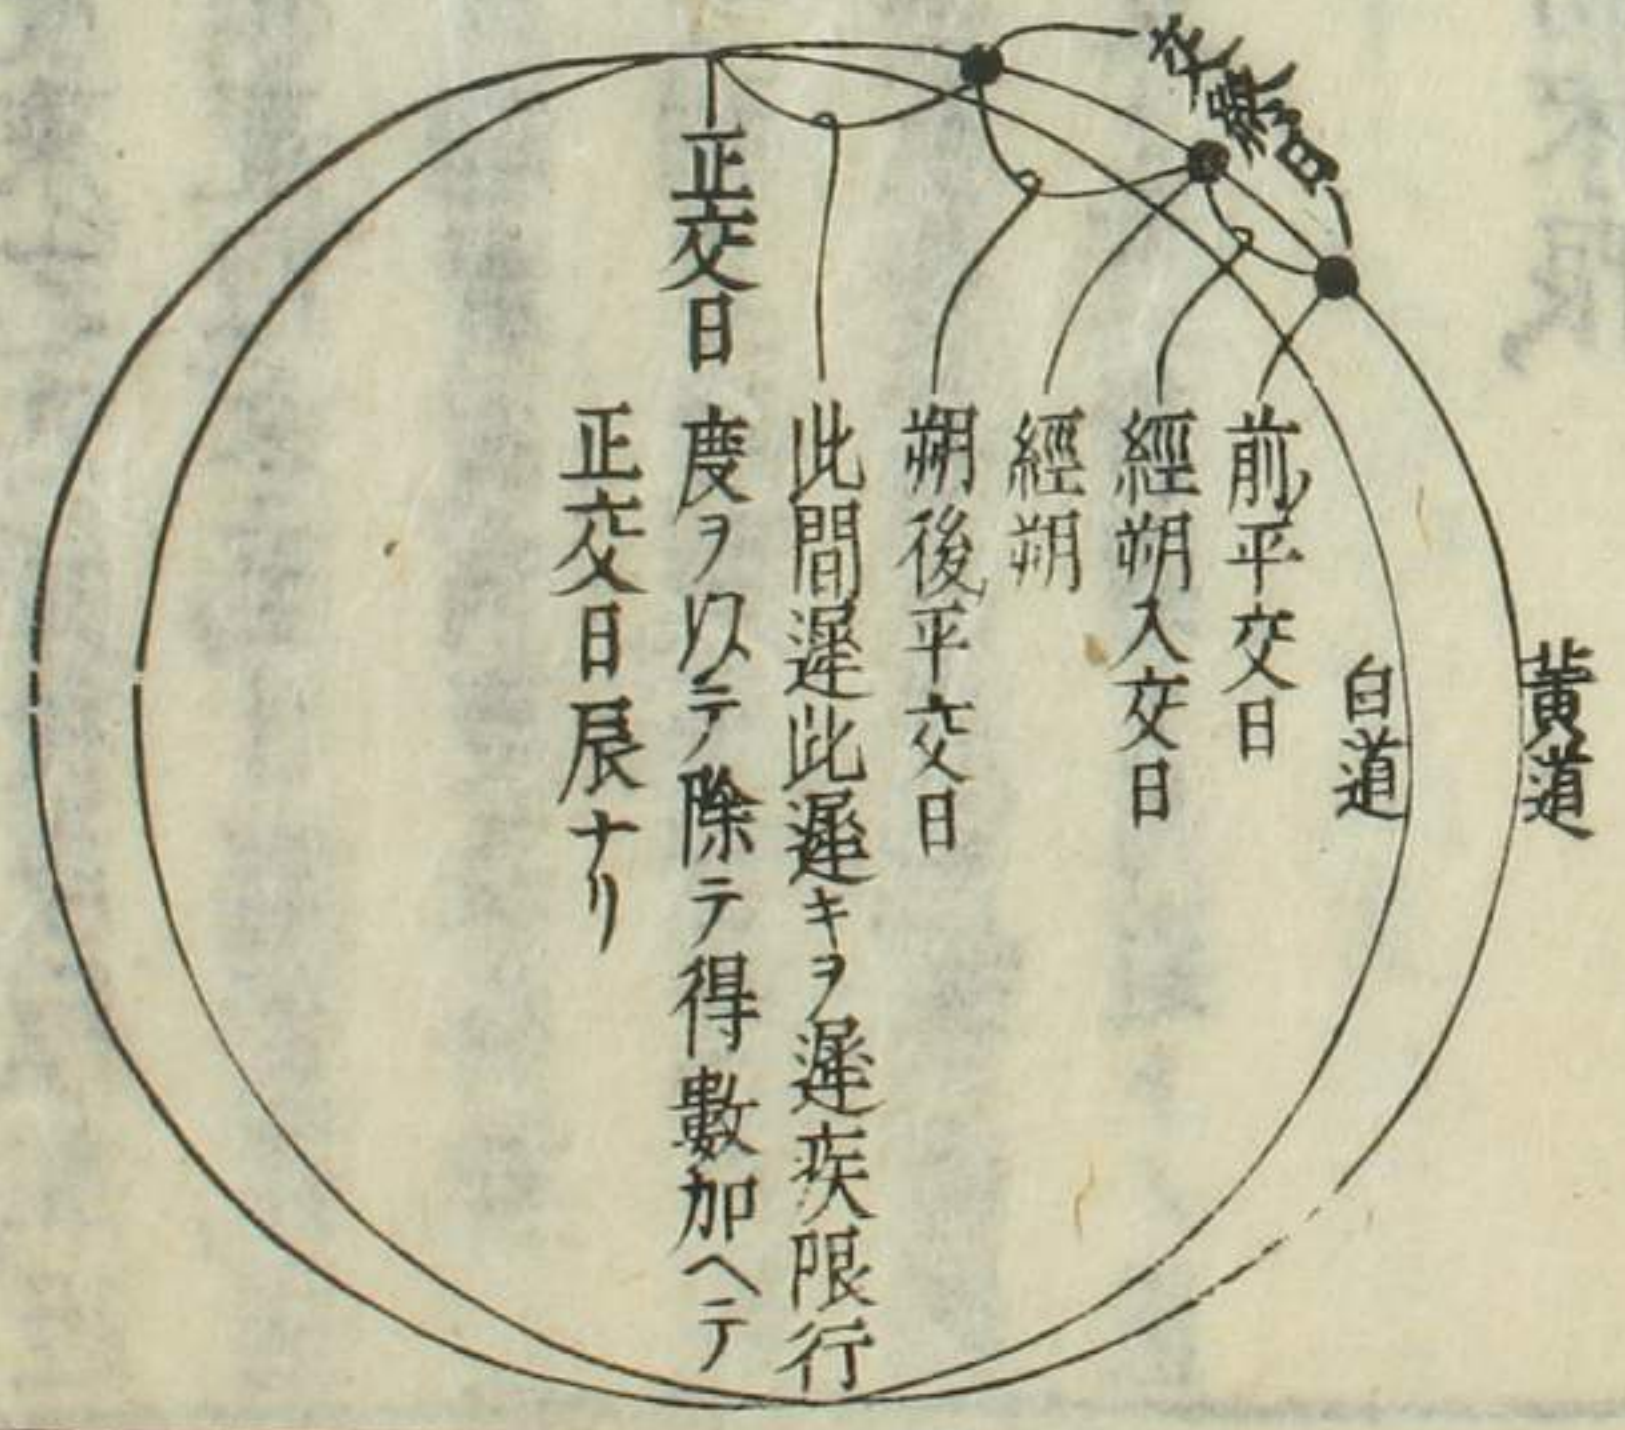 交終日
黄道
白道
前平交日
經朔入交日
經朔
朔後平交日
此間遲此遲キヲ遲疾限行
正交日
度ヲ以テ除テ得數加ヘテ
正交日辰ナリ